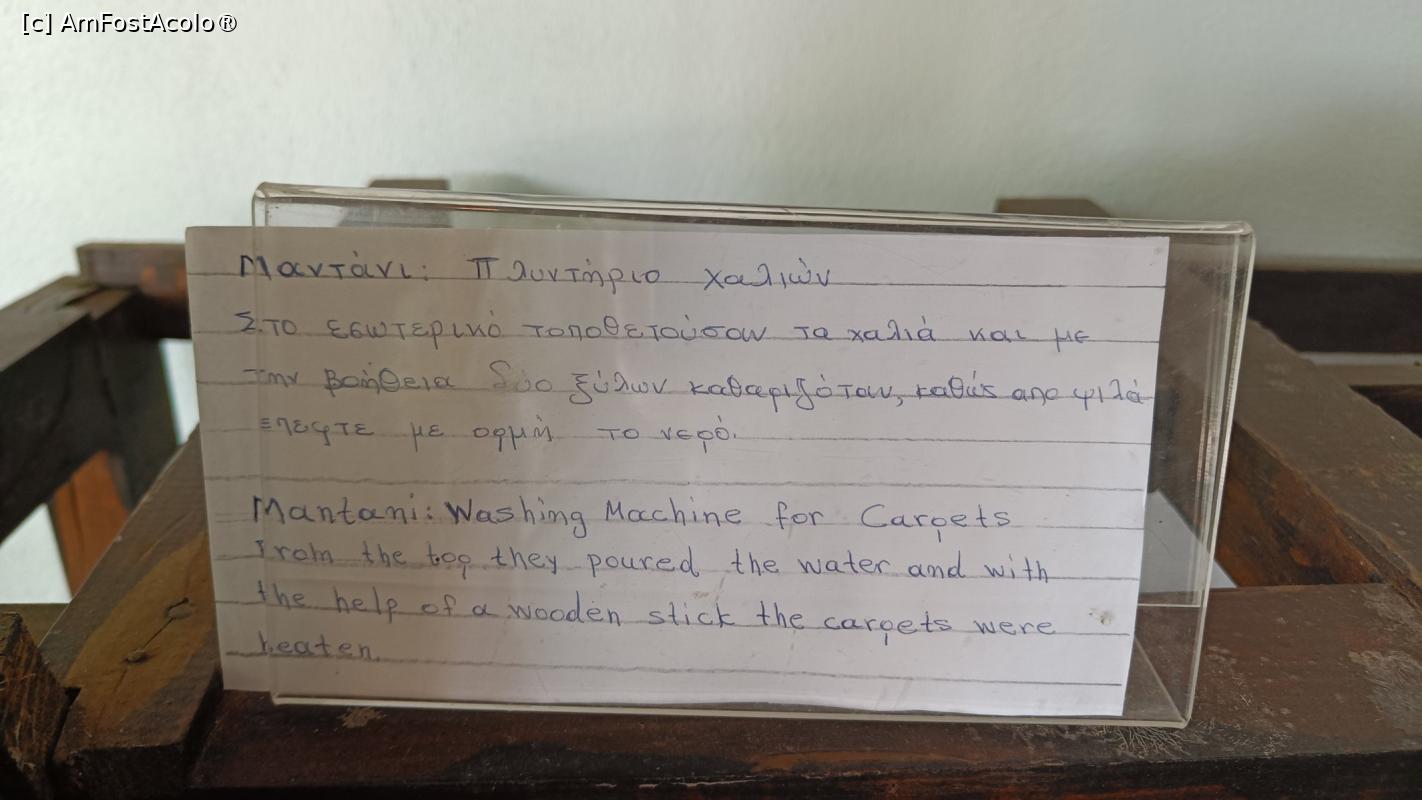 [c] AmFostAcolo®
Μαντάνι: Πλυντήριο χαλιών
Στο εσωτερικό τοποθετούσαν τα χαλιά και με
την βοήθεια δύο ξύλων καθαριζόταν, καθώς απο ψιλά
έπεφτε με ορμή το νερό.
Mantani: Washing Machine for Carpets
From the top they poured the water and with
the help of a wooden stick the carpets were
beaten.